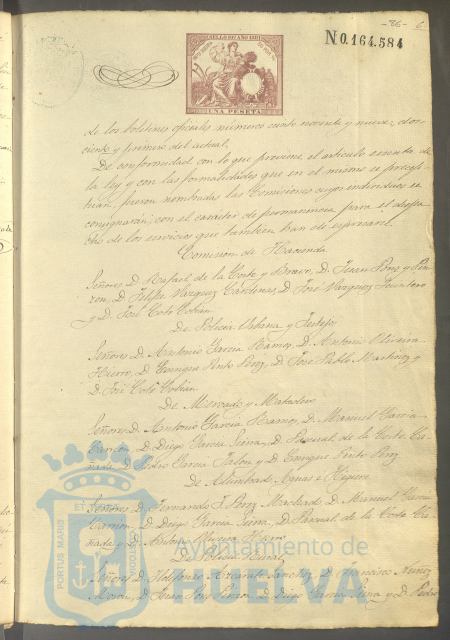 -36- 6
SELLO 10º AÑO 1881
N0.164.584
UNA PESETA
de los boletines oficiales números ciento noventa y nueve, dos
cientos y primero del actual.
De conformidad con lo que previene el artículo sesenta de
la ley y con las formalidades que en el mismo se prescri
bían, fueron nombradas las Comisiones cuyos individuos se
consignarán, con el carácter de permanencia para el despa
cho de los servicios que también han de expresarse.
Comisión de Hacienda
Señores D. Rafael de la Corte y Bravo, D. Juan Pons y Pin
zón, D. Felipe Vázquez Cárdenas, D. José Vázquez
y D. José Coto Cobián
De Policía Urbana y Festejos
Señores D. Antonio García Ramos, D. Antonio Oliveira
Hierro, D. Enrique Pinto Pérez, D. José Pablo Martínez y
D. José Coto Cobián
De Mercado y Matadero
Señores D. Antonio García Ramos, D. Manuel García
D. Diego García D. Pascual de la Corte
D. Pedro García Jalón y D. Enrique Pinto Pérez
De Alumbrado, Aguas e Higiene
Señores D. Fernando F. Pérez Machado, D. Manuel García
D. Diego García D. Pascual de la Corte
y D.
De Policía Rural
Señores D. Ildefonso D. Francisco Núñez
D. Juan Pons Pinzón, D. Diego García y D. Pedro
PORTUS MARIS
ET
Ayuntamiento de
HUELVA